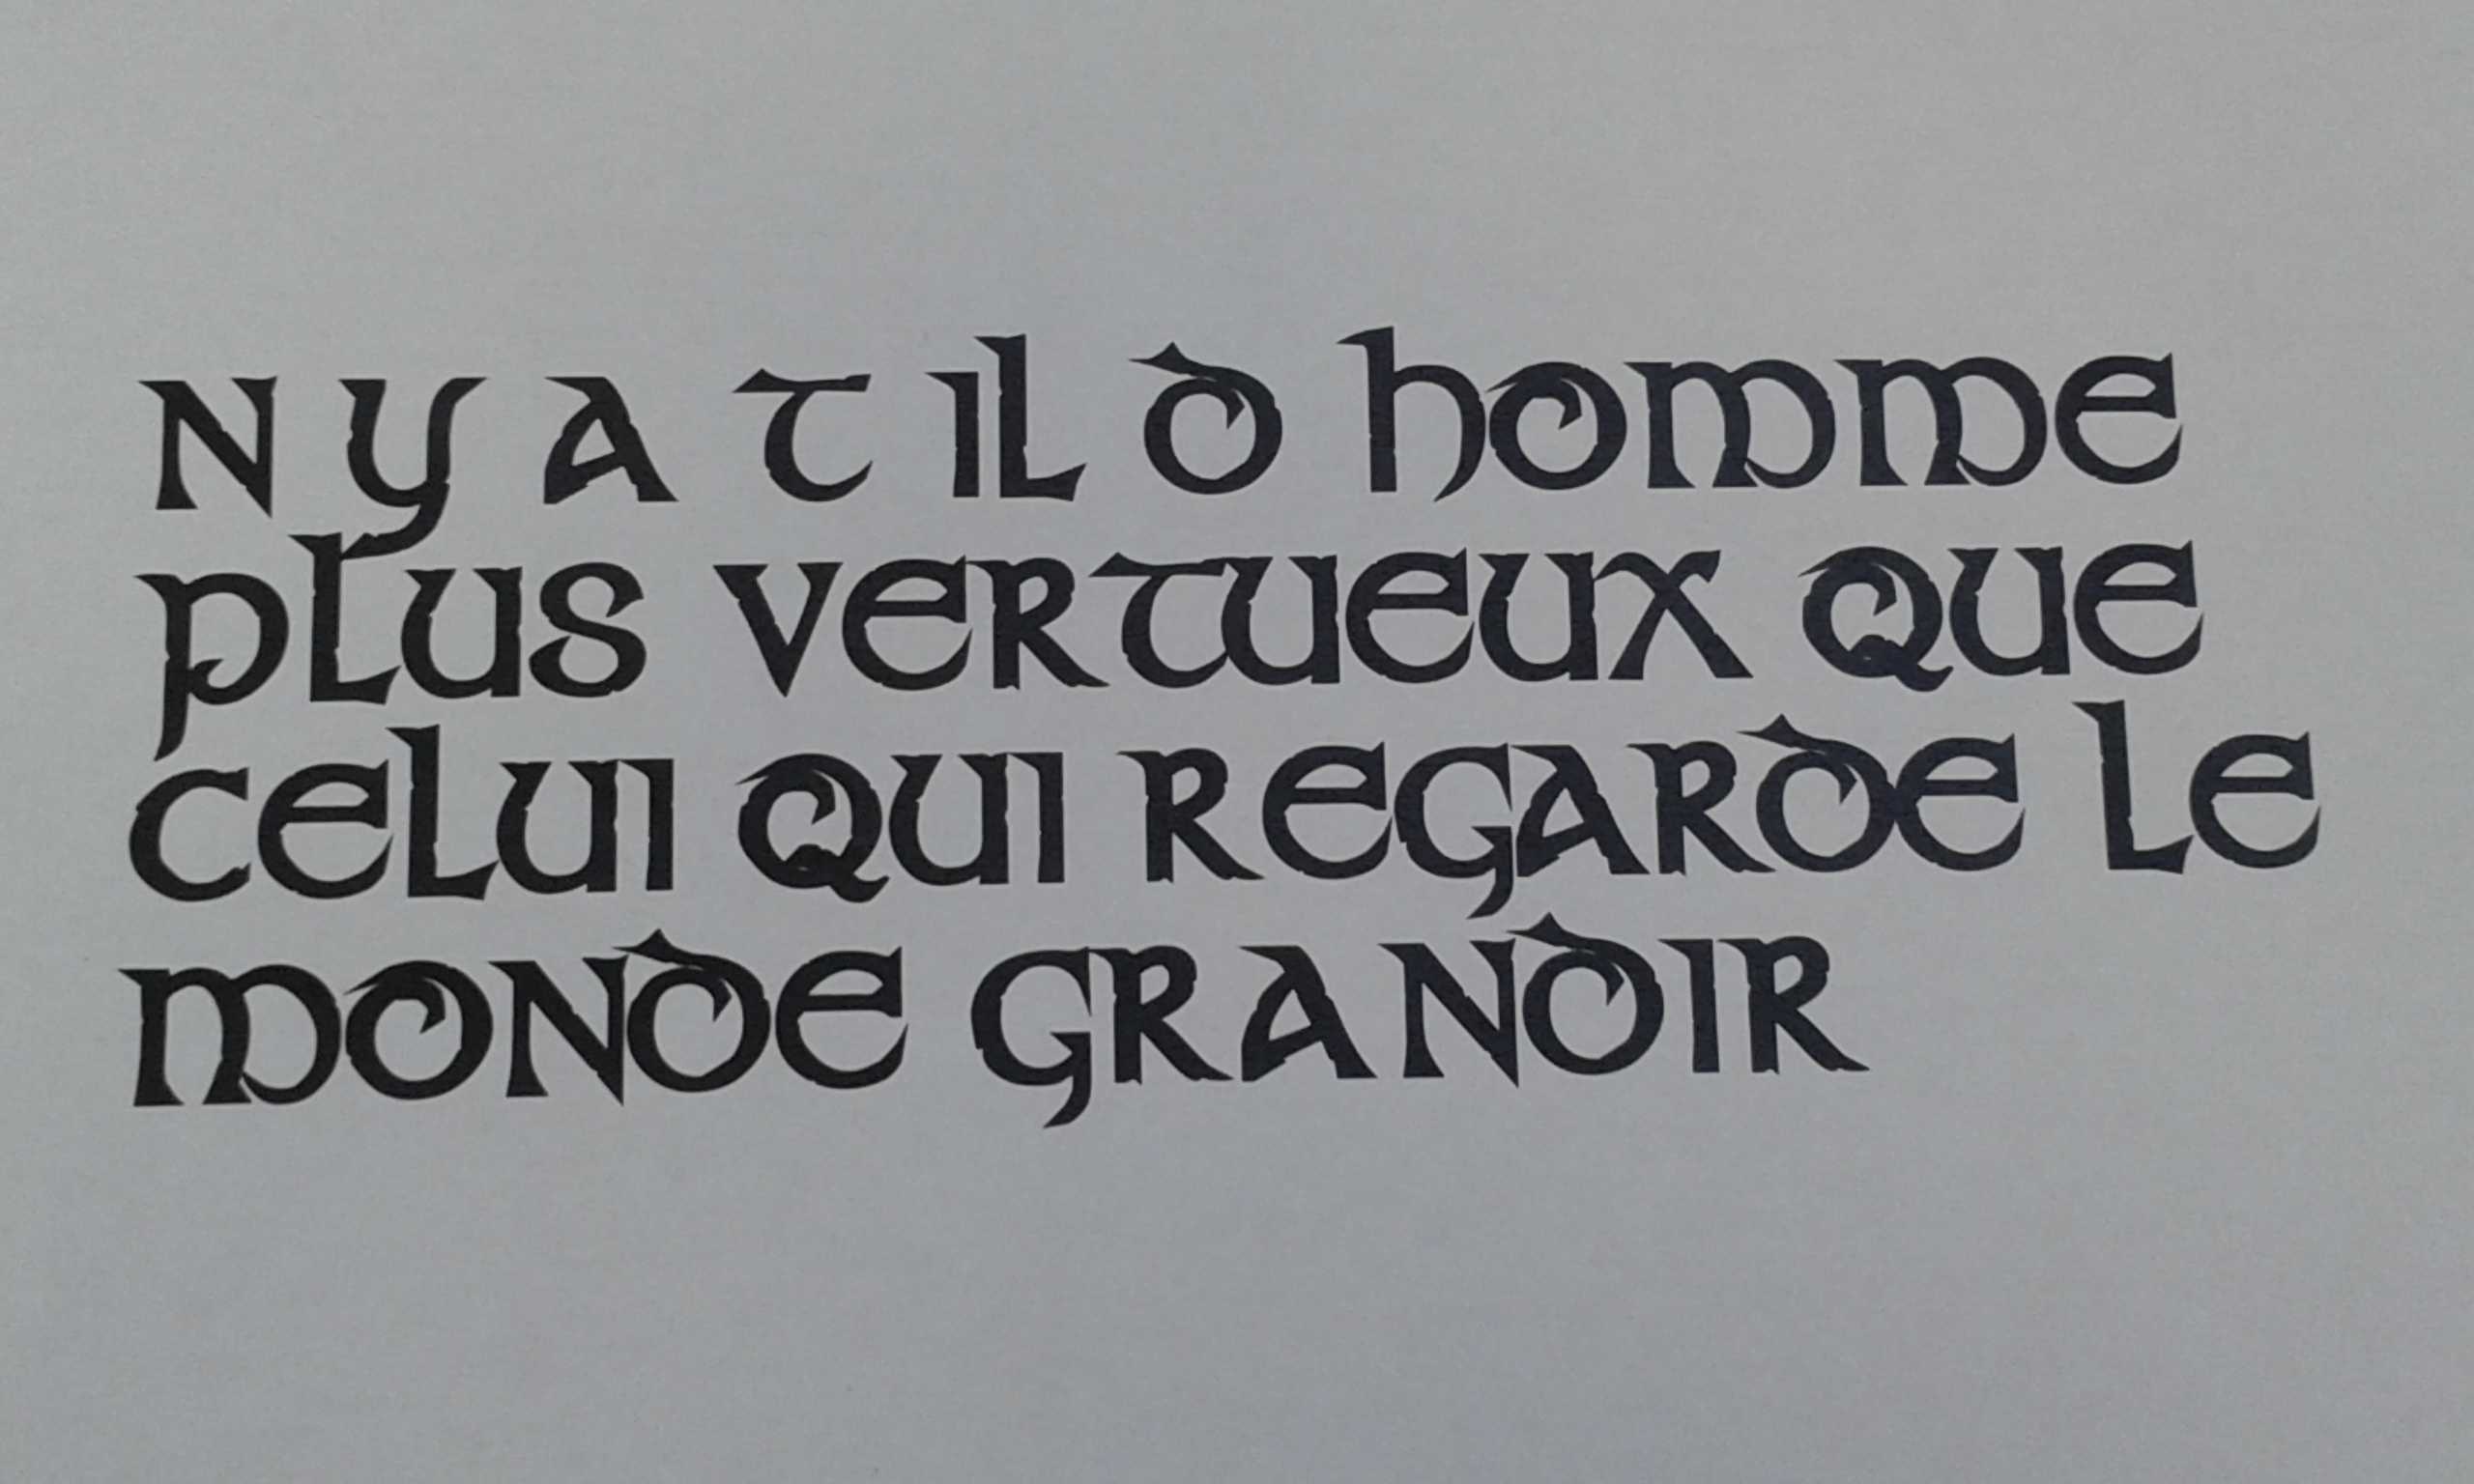 N Y A T IL D HOMME
PLUS VERTUEUX QUE
CELUI QUI REGARDE LE
MONDE GRANDIR